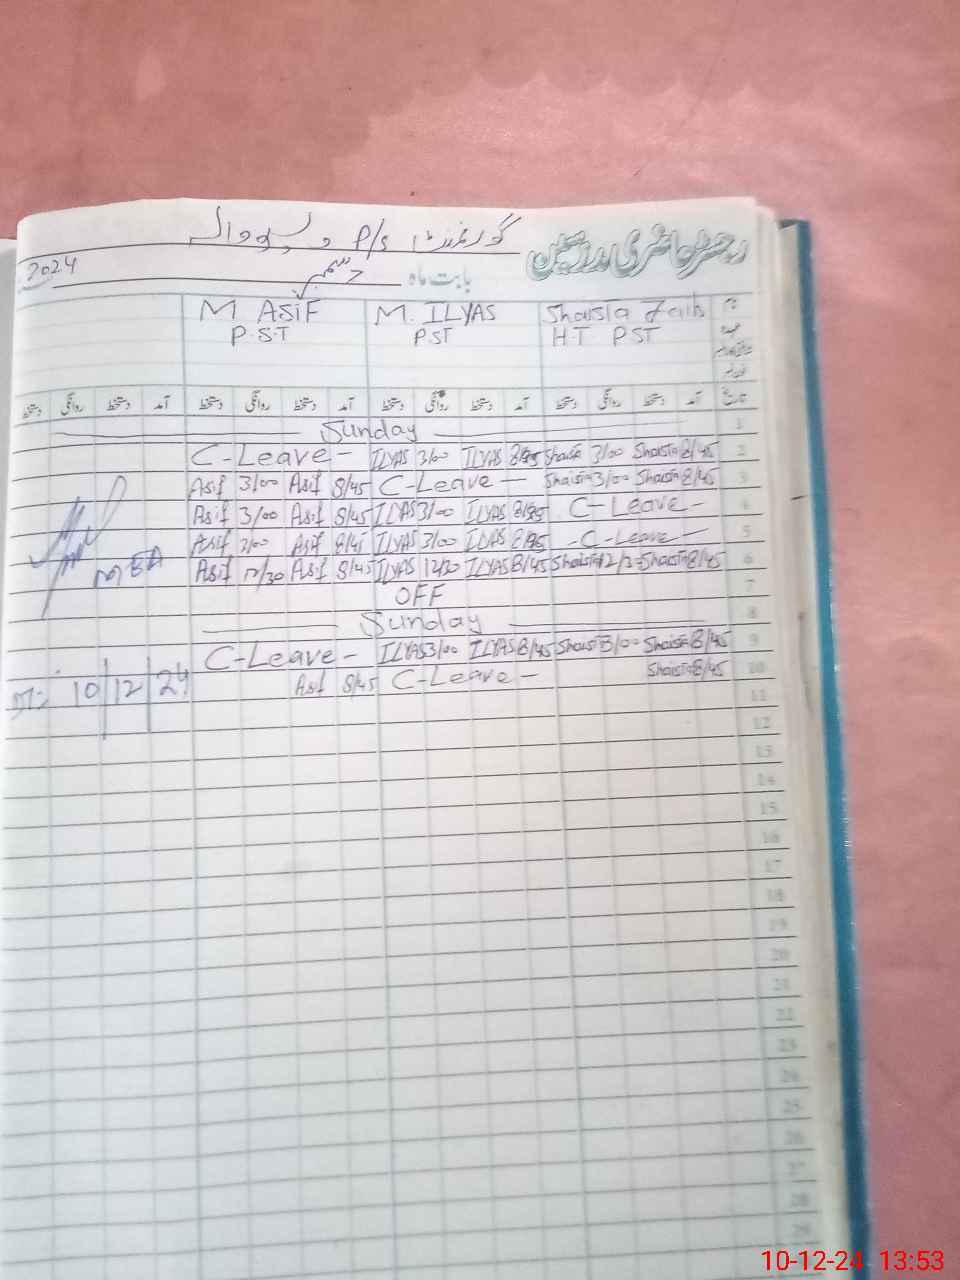 رجسٹر حاضری مدرسین
گورنمنٹ P/S
بابت ماہ دسمبر 2024
نام Shaista Zaib M. ILYAS M ASiF
عہدہ H.T PST PST P.S.T
تاریخ آمد دستخط روانگی دستخط آمد دستخط روانگی دستخط آمد دستخط روانگی دستخط آمد دستخط روانگی دستخط
1 Sunday
2 C-Leave - ILYAS 3/00 ILYAS 8/45 Shaista 3/00 Shaista 8/45
3 Asif 3/00 Asif 8/45 C-Leave - Shaista 3/00 Shaista 8/45
4 Asif 3/00 Asif 8/45 ILYAS 3/00 ILYAS 8/45 C-Leave -
5 Asif 3/00 Asif 8/45 ILYAS 3/00 ILYAS 8/45 -C-Leave-
6 Asif 12/30 Asif 8/45 ILYAS 12/30 ILYAS 8/45 Shaista 12/3- Shaista 8/45
7 OFF
8 Sunday
9 C-Leave - ILYAS 3/00 ILYAS 8/45 Shaista 3/00 Shaista 8/45
10 Asif 8/45 C-Leave - Shaista 8/45
MEA
DT:- 10/12/24
11
12
13
14
15
16
17
18
19
20
21
22
23
24
25
26
27
28
29
10-12-24 13:53